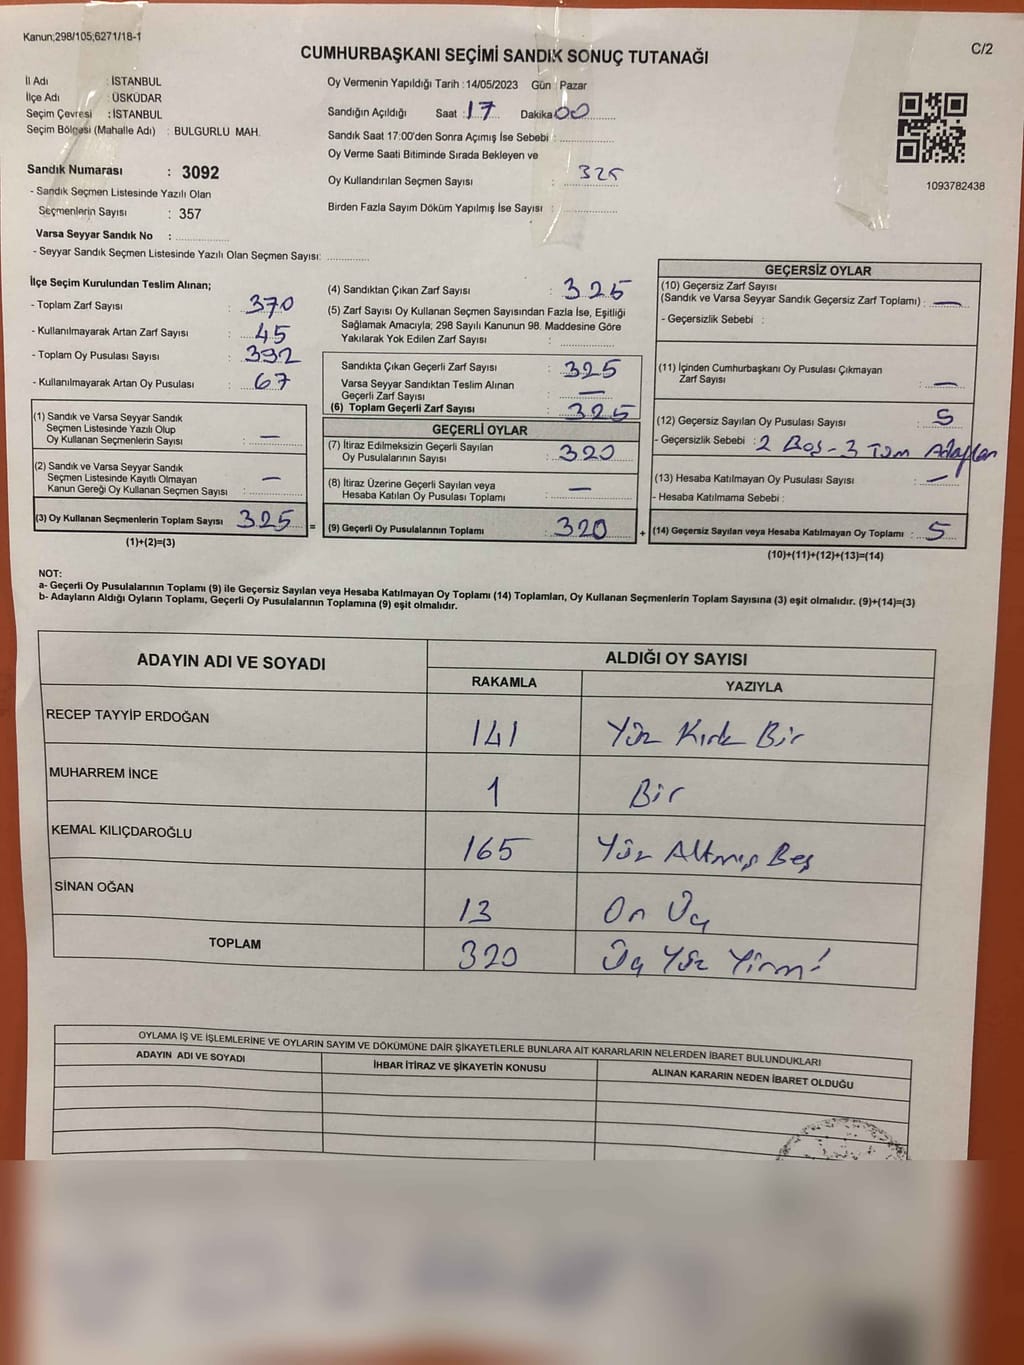 Kanun;298/105;6271/18-1
C/2
CUMHURBAŞKANI SEÇİMİ SANDIK SONUÇ TUTANAĞI
İl Adı : İSTANBUL
İlçe Adı : ÜSKÜDAR
Seçim Çevresi : İSTANBUL
Seçim Bölgesi (Mahalle Adı) : BULGURLU MAH.
Sandık Numarası : 3092
- Sandık Seçmen Listesinde Yazılı Olan
Seçmenlerin Sayısı : 357
Varsa Seyyar Sandık No :
- Seyyar Sandık Seçmen Listesinde Yazılı Olan Seçmen Sayısı:
Oy Vermenin Yapıldığı Tarih : 14/05/2023 Gün : Pazar
Sandığın Açıldığı Saat : 17 Dakika 00
Sandık Saat 17:00'den Sonra Açımış İse Sebebi :
Oy Verme Saati Bitiminde Sırada Bekleyen ve
Oy Kullandırılan Seçmen Sayısı : 325
Birden Fazla Sayım Döküm Yapılmış İse Sayısı :
1093782438
İlçe Seçim Kurulundan Teslim Alınan;
- Toplam Zarf Sayısı : 370
- Kullanılmayarak Artan Zarf Sayısı : 45
- Toplam Oy Pusulası Sayısı : 392
- Kullanılmayarak Artan Oy Pusulası : 67
(1) Sandık ve Varsa Seyyar Sandık
Seçmen Listesinde Yazılı Olup
Oy Kullanan Seçmenlerin Sayısı : —
(2) Sandık ve Varsa Seyyar Sandık
Seçmen Listesinde Kayıtlı Olmayan
Kanun Gereği Oy Kullanan Seçmen Sayısı : —
(3) Oy Kullanan Seçmenlerin Toplam Sayısı 325 =
(1)+(2)=(3)
(4) Sandıktan Çıkan Zarf Sayısı : 325
(5) Zarf Sayısı Oy Kullanan Seçmen Sayısından Fazla İse, Eşitliği
Sağlamak Amacıyla; 298 Sayılı Kanunun 98. Maddesine Göre
Yakılarak Yok Edilen Zarf Sayısı :
Sandıkta Çıkan Geçerli Zarf Sayısı : 325
Varsa Seyyar Sandıktan Teslim Alınan
Geçerli Zarf Sayısı : —
(6) Toplam Geçerli Zarf Sayısı : 325
GEÇERLİ OYLAR
(7) İtiraz Edilmeksizin Geçerli Sayılan
Oy Pusulalarının Sayısı : 320
(8) İtiraz Üzerine Geçerli Sayılan veya
Hesaba Katılan Oy Pusulası Toplamı : —
(9) Geçerli Oy Pusulalarının Toplamı : 320 +
GEÇERSİZ OYLAR
(10) Geçersiz Zarf Sayısı
(Sandık ve Varsa Seyyar Sandık Geçersiz Zarf Toplamı) : —
- Geçersizlik Sebebi :
(11) İçinden Cumhurbaşkanı Oy Pusulası Çıkmayan
Zarf Sayısı : —
(12) Geçersiz Sayılan Oy Pusulası Sayısı : 5
- Geçersizlik Sebebi : 2 Boş - 3 Tüm Adaylar
(13) Hesaba Katılmayan Oy Pusulası Sayısı : —
- Hesaba Katılmama Sebebi :
(14) Geçersiz Sayılan veya Hesaba Katılmayan Oy Toplamı : 5
(10)+(11)+(12)+(13)=(14)
NOT:
a- Geçerli Oy Pusulalarının Toplamı (9) ile Geçersiz Sayılan veya Hesaba Katılmayan Oy Toplamı (14) Toplamları, Oy Kullanan Seçmenlerin Toplam Sayısına (3) eşit olmalıdır. (9)+(14)=(3)
b- Adayların Aldığı Oyların Toplamı, Geçerli Oy Pusulalarının Toplamına (9) eşit olmalıdır.
ADAYIN ADI VE SOYADI
ALDIĞI OY SAYISI
RAKAMLA YAZIYLA
RECEP TAYYİP ERDOĞAN 141 Yüz Kırk Bir
MUHARREM İNCE 1 Bir
KEMAL KILIÇDAROĞLU 165 Yüz Altmış Beş
SİNAN OĞAN 13 On Üç
TOPLAM 320 Üç Yüz Yirmi
OYLAMA İŞ VE İŞLEMLERİNE VE OYLARIN SAYIM VE DÖKÜMÜNE DAİR ŞİKAYETLERLE BUNLARA AİT KARARLARIN NELERDEN İBARET BULUNDUKLARI
ADAYIN ADI VE SOYADI İHBAR İTİRAZ VE ŞİKAYETİN KONUSU ALINAN KARARIN NEDEN İBARET OLDUĞU